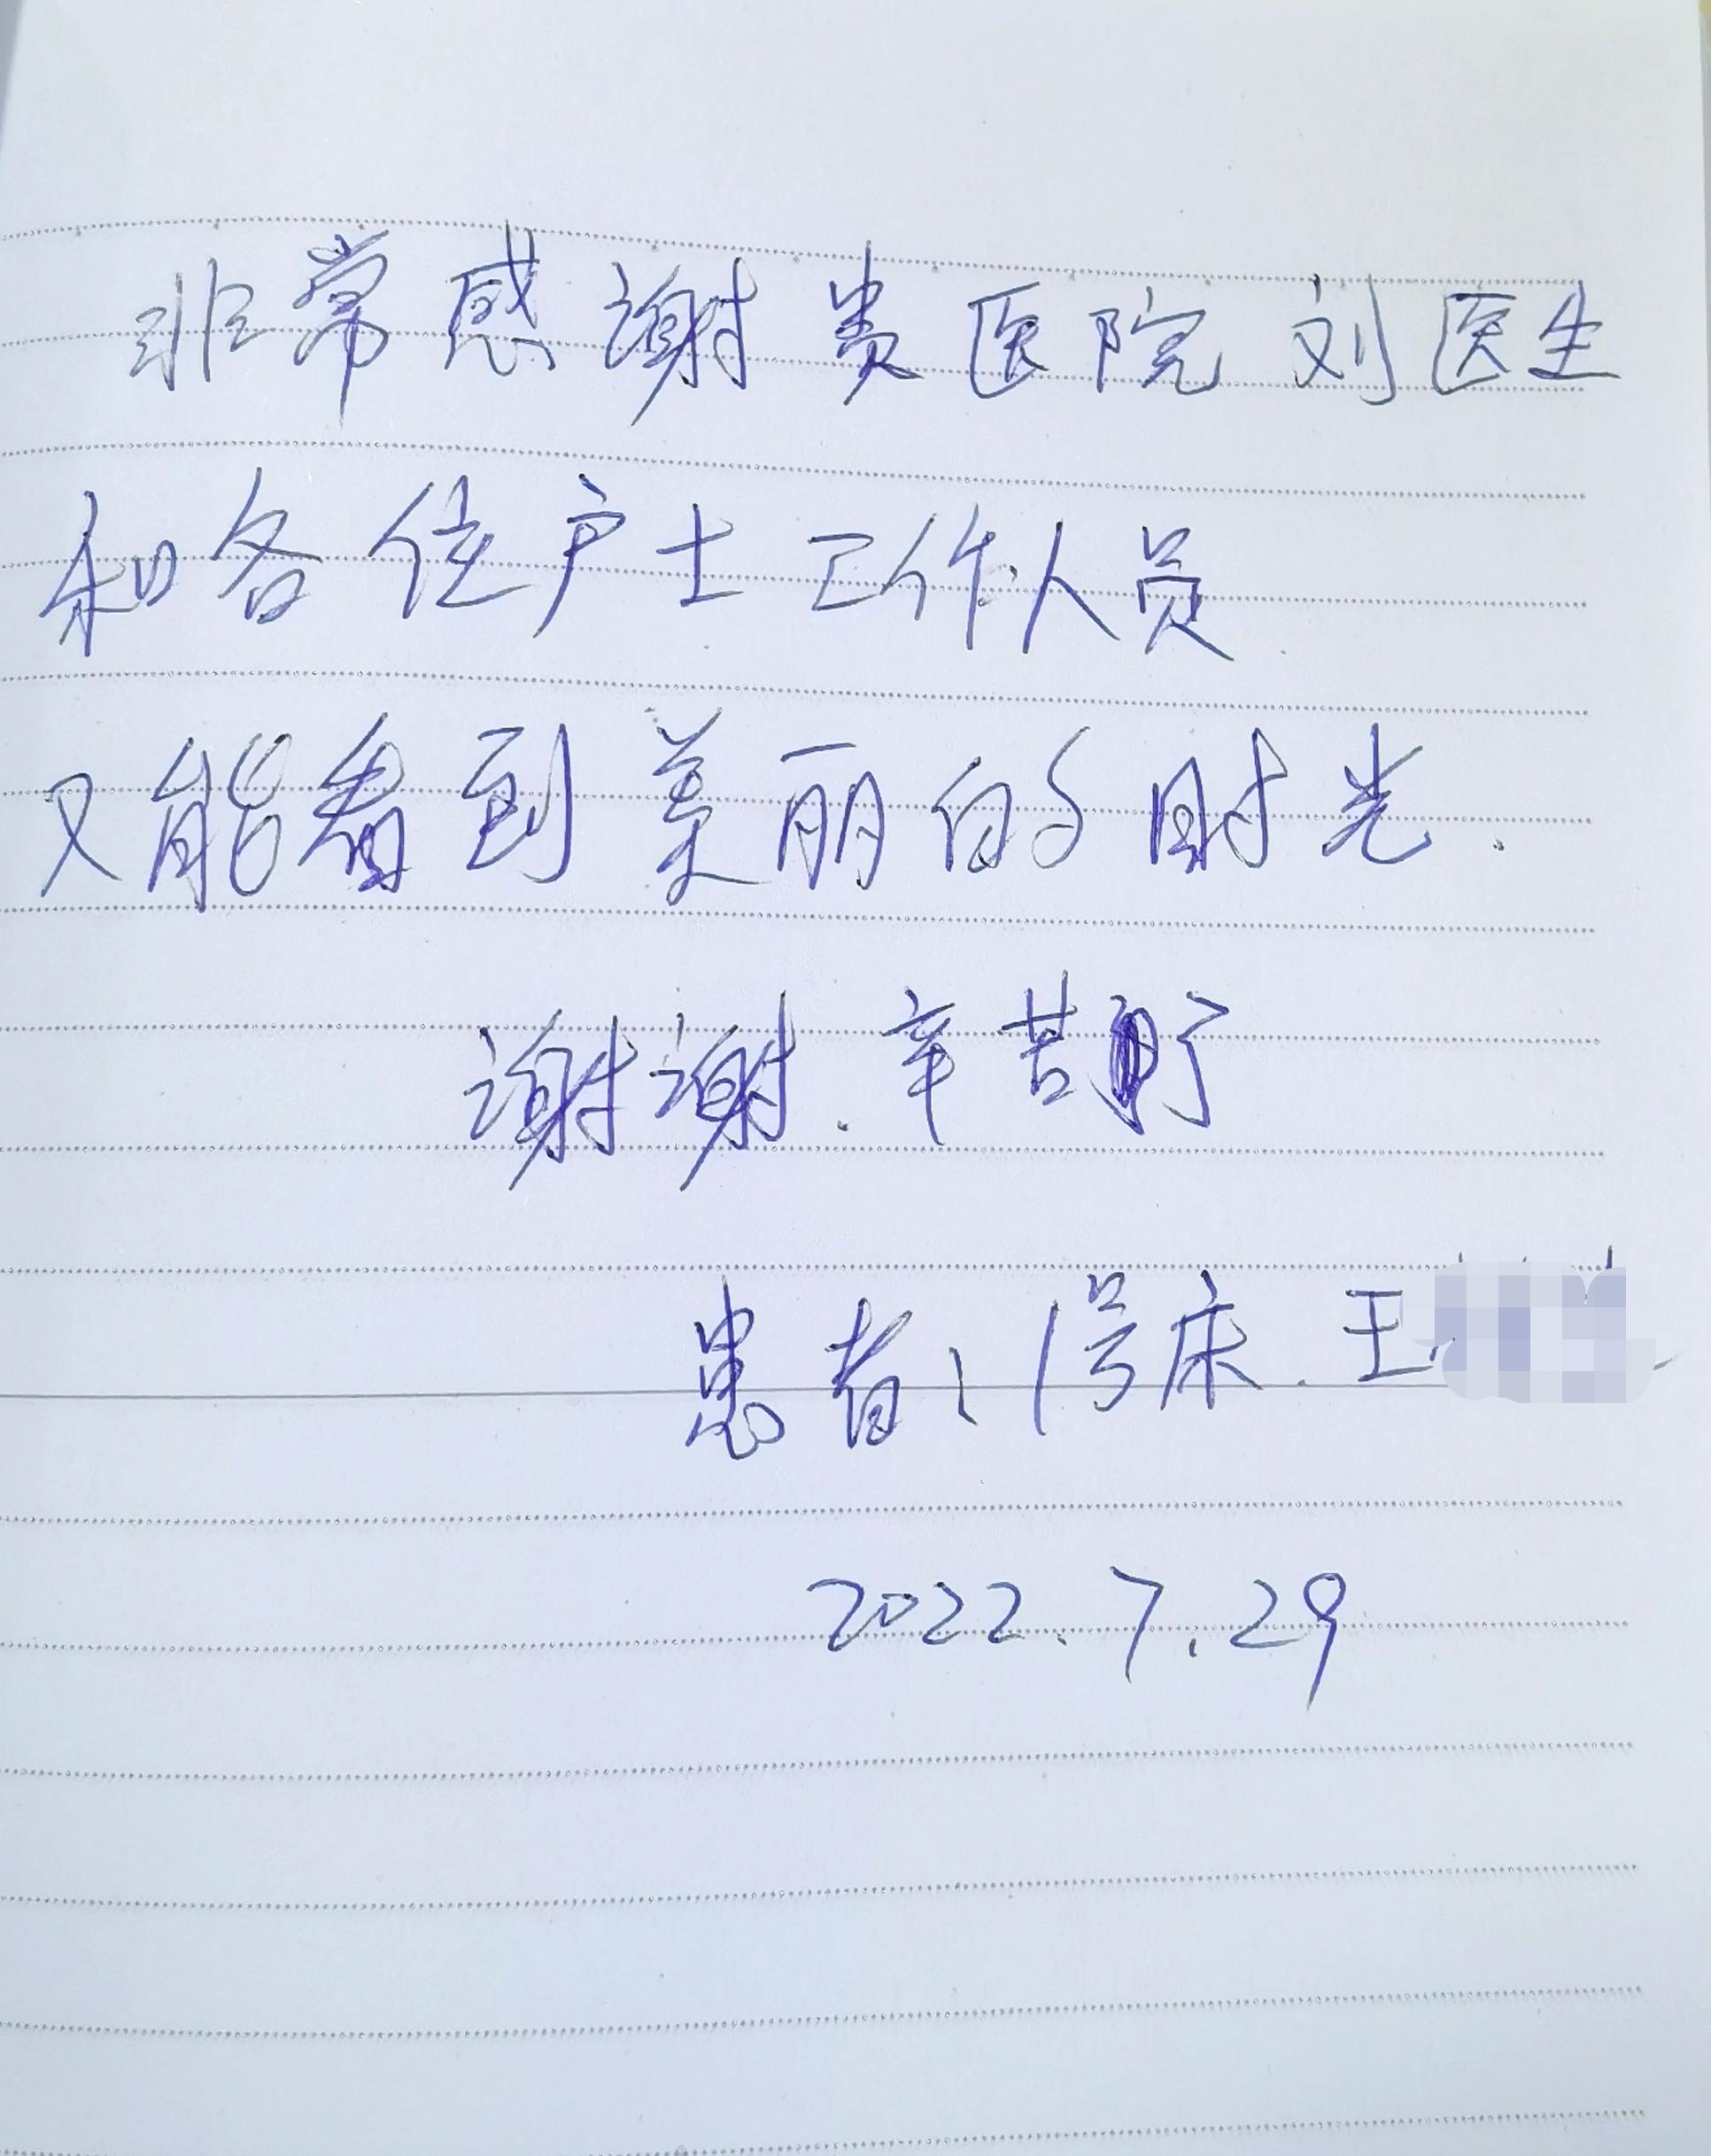 非常感谢贵医院刘医生
和各位户士工作人员.
又能看到美丽的时光.
谢谢.辛苦了
患者:1号床.王
2022.7.29